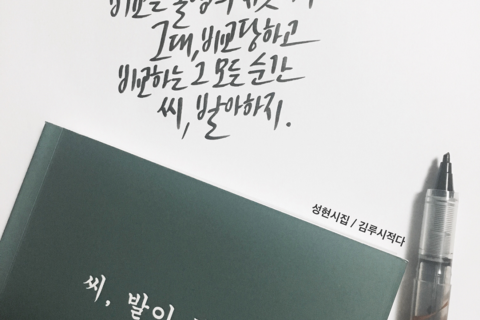 비교는 불행의
그대, 비교당하고
비교하는 그 모든 순간
씨, 발아하지.
성현시집 / 김루시적다
씨, 발아